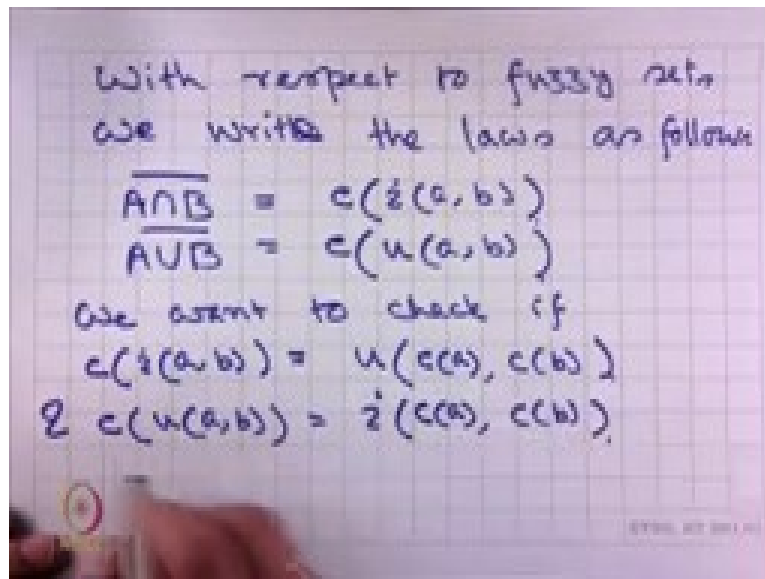 With respect to fuzzy sets
we write the laws as follows
A∩B̅ = c(i(a,b))
A∪B̅ = c(u(a,b))
we want to check if
c(i(a,b)) = u(c(a), c(b))
& c(u(a,b)) = i(c(a), c(b)).